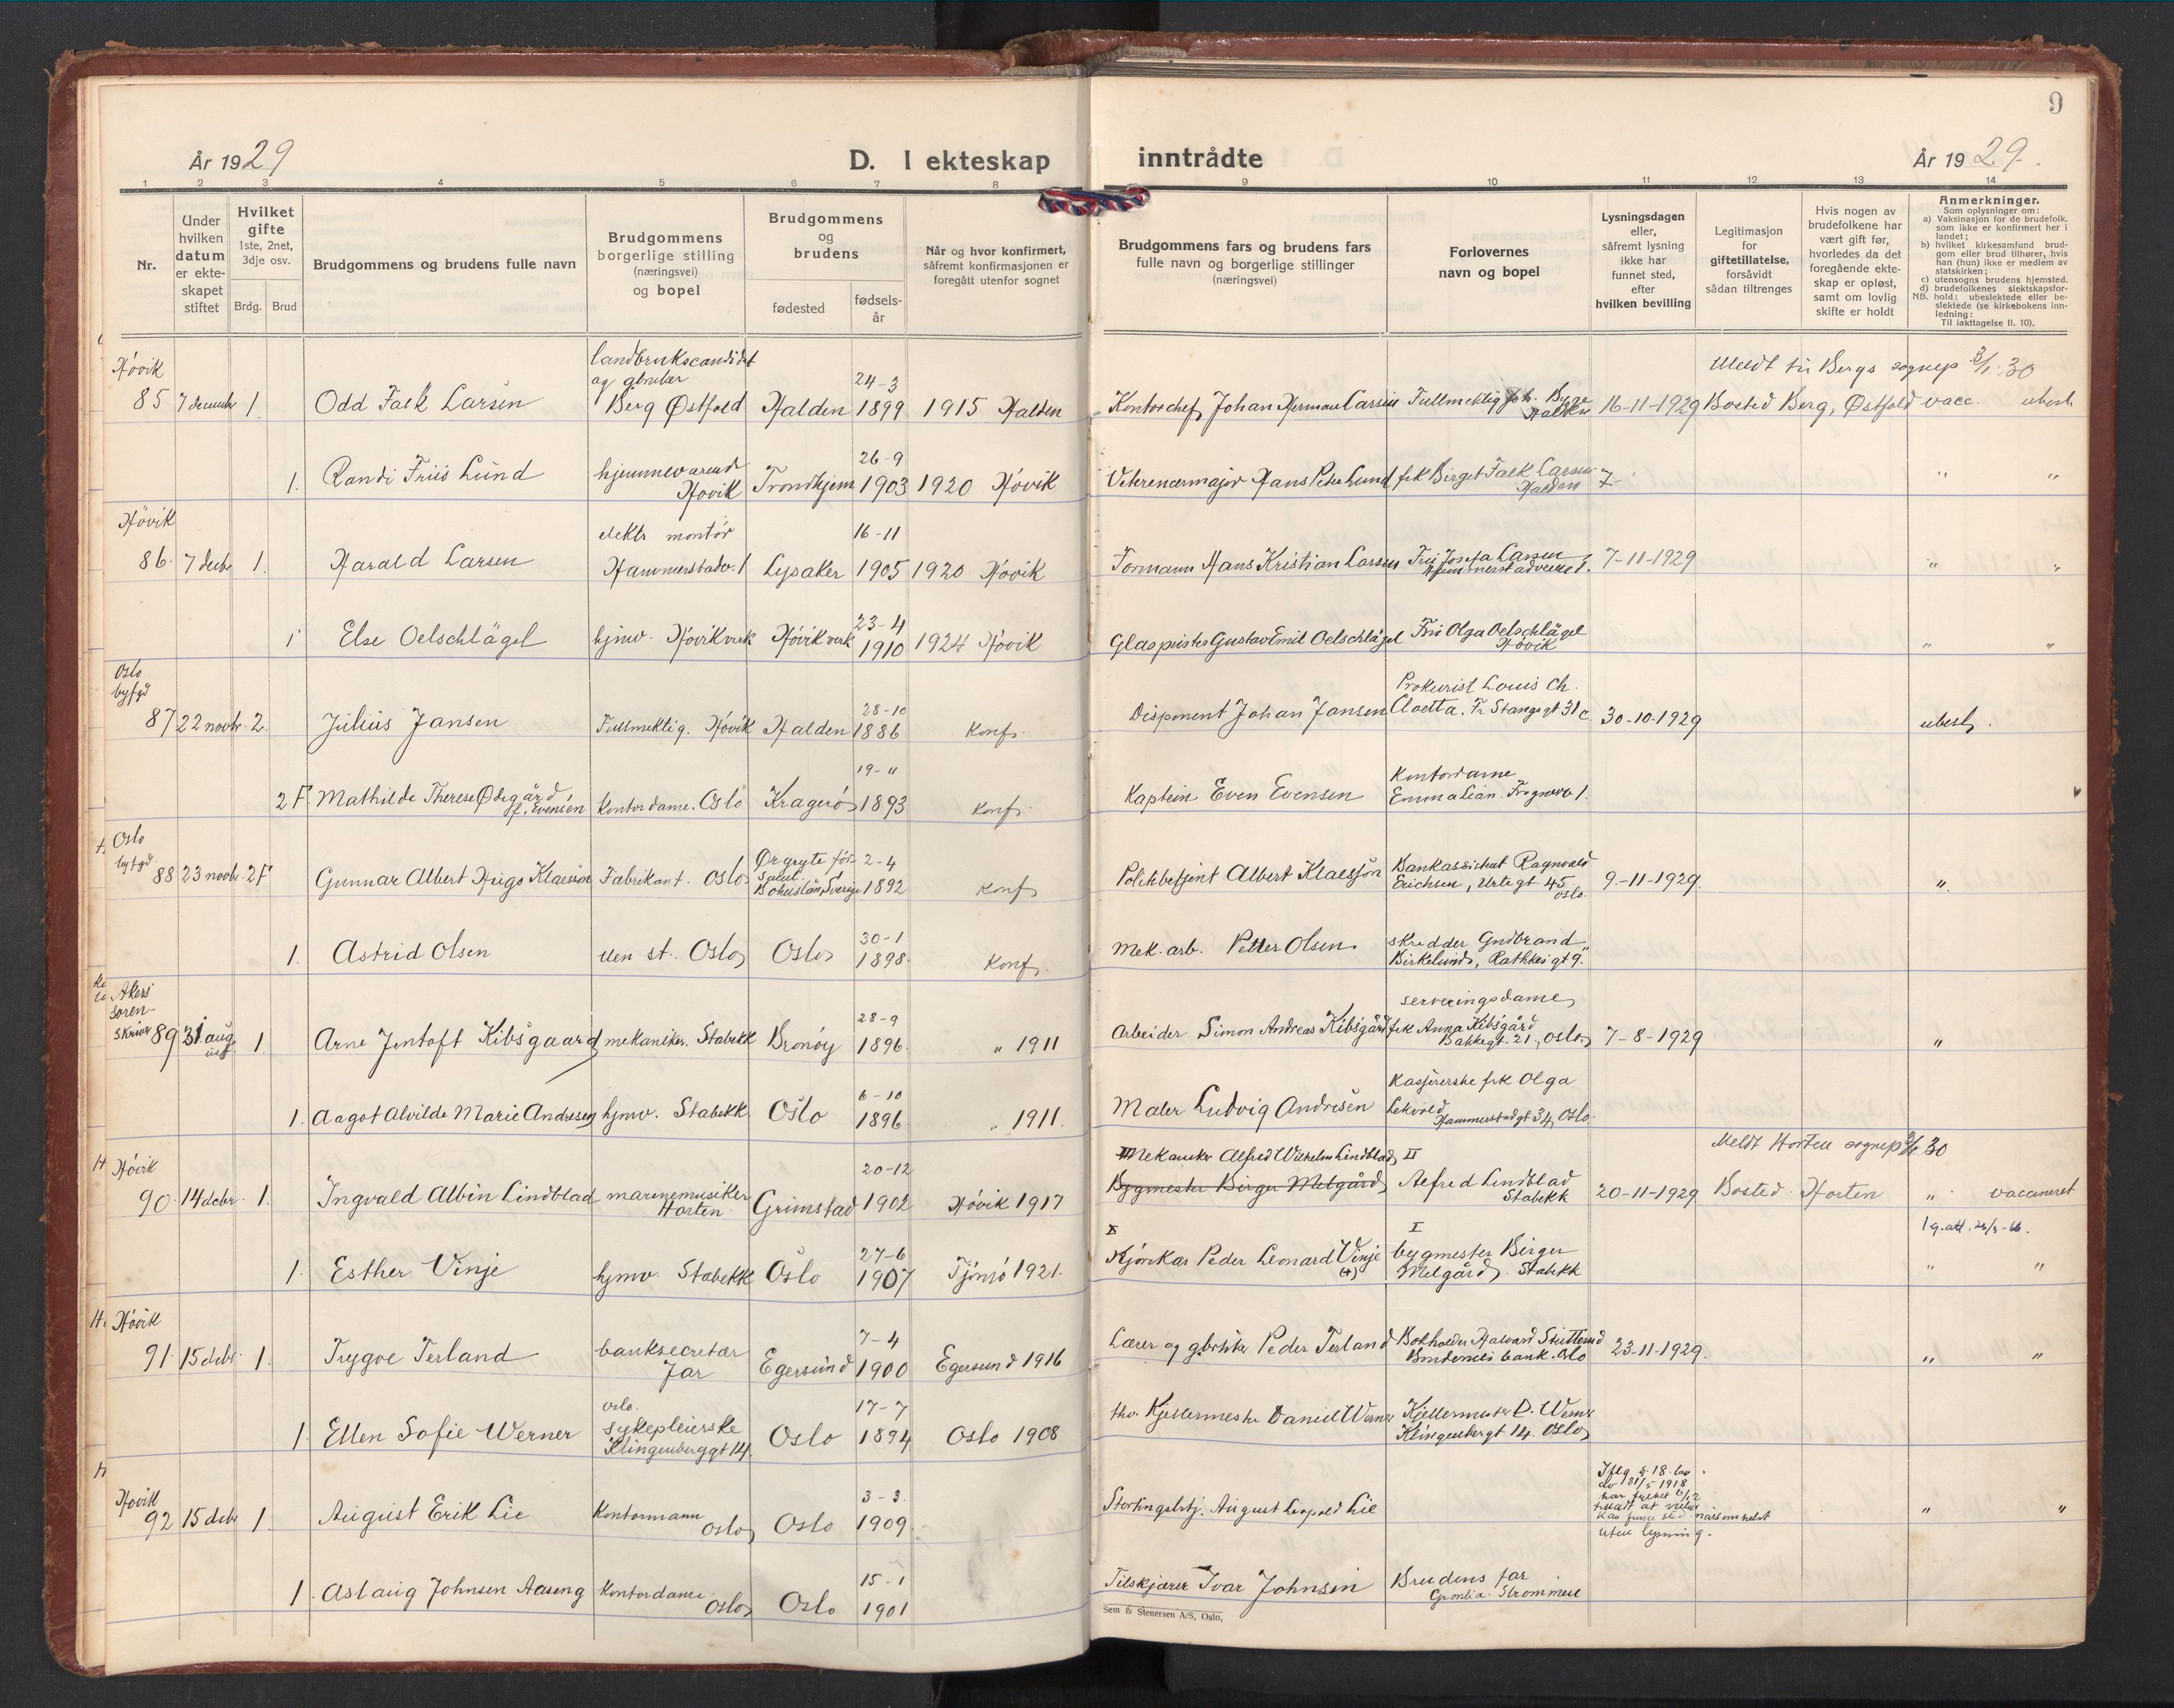 9
År 1929
D. I ekteskap
inntrådte
År 1929.
1 2 3 4 5 6 7 8 9 10 11 12 13 14
Nr.
Under
hvilken
datum
er ekte-
skapet
stiftet
Hvilket
gifte
1ste, 2net,
3dje osv.
Brdg. Brud
Brudgommens og brudens fulle navn
Brudgommens
borgerlige stilling
(næringsvei)
og bopel
Brudgommens
og
brudens
fødested
fødsels-
år
Når og hvor konfirmert,
såfremt konfirmasjonen er
foregått utenfor sognet
Brudgommens fars og brudens fars
fulle navn og borgerlige stillinger
(næringsvei)
Forlovernes
navn og bopel
Lysningsdagen
eller,
såfremt lysning
ikke har
funnet sted,
efter
hvilken bevilling
Legitimasjon
for
giftetillatelse,
forsåvidt
sådan tiltrenges
Hvis nogen av
brudefolkene har
vært gift før,
hvorledes da det
foregående ekte-
skap er opløst,
samt om lovlig
skifte er holdt
Anmerkninger.
Som oplysninger om:
a) Vaksinasjon for de brudefolk,
som ikke er konfirmert her i
landet;
b) hvilket kirkesamfund brud-
gom eller brud tilhører, hvis
han (hun) ikke er medlem av
statskirken;
c) utensogns brudens hjemsted.
d) brudefolkenes slektskapsfor-
NB. hold: ubeslektede eller be-
slektede (se kirkebokens inn-
ledning:
Til iakttagelse II. 10).
Høvik
landbrukscandidat
og gbruker
24-3
Meldt til Bergs sognep 3/1 30
85 7 decembr 1 Odd Falk Larsen Berg Østfold Halden 1899 1915 Halden Kontorchef Johan Herman Larsen Fullmektig Joh. Bygge Halden 16-11-1929 Bosted Berg, Østfold vacc. ubesl.
26-9
1. Randi Friis Lund hjemmevarend Høvik Trondhjem 1903 1920 Høvik Veterenærmajor Hans Peter Lund frk Birget Falk Larsen Halden " "
Høvik
elektr montør
16-11
86. 7 decbr 1. Harald Larsen Hammerstadv. 1 Lysaker 1905 1920 Høvik Formann Hans Kristian Larsen Fru Josefa Larsen Hammerstadveie 1. 7-11-1929 " "
23-4
1 Else Oelschlägel hjmv. Høvikverk Høvikverk 1910 1924 Høvik Glaspuster Gustav Emil Oelschlägel Fru Olga Oelschlägel Høvik " "
Oslo
byfgd
28-10
Prokurist Louis Ch.
87 22 novbr. 2. Julius Jansen Fullmektig. Høvik Halden 1886 Konf. Disponent Johan Jansen Cloetta. Fr Stangsgt 31c 30-10-1929 ubesl.
19-11
Kontordame
2 F. Mathilde Therese Ødegård f. Evensen Kontordame. Oslo Kragerø 1893 Konf. Kaptein Even Evensen Emma Lian. Frognerv 1.
Oslo
byfgd.
2-4
88 23 novbr. 2F Gunnar Albert Hugo Klaesson Fabrikant. Oslo Ørgryte för. saml. Bohuslän, Sverige 1892 Konf. Politibetjent Albert Klaessjon Bankassistent Ragnvald Erichsen, Urtegt 45 Oslo. 9-11-1929. "
30-1
1. Astrid Olsen uten st. Oslo Oslo 1898. Konf. Mek. arb. Petter Olsen. skredder Gudbrand Birkelund, Rathkesgt 9.
Akers
soren-
skriver
28-9
serveringsdame
89 31 aug 1 Arne Jentoft Kibsgaard mekaniker. Stabekk Brønøy 1896. " 1911 Arbeider Simon Andreas Kibsgård frk Anna Kibsgård Bakkegt. 21., Oslo 7-8-1929 "
6-10
Kasjererske frk Olga
1. Aagot Alvilde Marie Andresen hjmv. Stabekk Oslo 1896. " 1911. Maler Ludvig Andresen Lekvold Hammerstadgt 34, Oslo.
Høvik
20-12
Mekaniker Alfred Wilhelm Lindblad II
Meldt Horten sognep 3/1 30
90. 14 decbr. 1. Ingvald Albin Lindblad marinemusiker Horten. Grimstad 1902 Høvik 1917 Bygmester Birger Melgård Alfred Lindblad Stabekk 20-11-1929 Bosted Horten " vaccineret
27-6
I
1 g. att. 24/3-66.
1. Esther Vinje hjmv. Stabekk Oslo 1907 Tjømø 1921. Kjørekar Peder Leonard Vinje (+) bygmester Birger Melgård. Stabekk " "
Høvik
7-4
91. 15 decbr. 1. Trygve Terland banksecretær Jar Egersund 1900 Egersund 1916 Lærer og gbruker Peder Terland Bokholder Halvard Stutterud Bøndernes bank. Oslo 23-11-1929. " "
oslo.
17-7
1. Ellen Sofie Werner sykepleierske Klingenberggt 14. Oslo 1894 Oslo 1908 thv. Kjellermester Daniel Werner Kjellermester D. Werner Klingenbergt 14. Oslo
Høvik
3-3.
92 15 decbr 1. August Erik Lie Kontormann Oslo Oslo 1909. Stortingsbetj. August Leopold Lie Iflg § 18. lov av 31/5 1918 har fylket 6/12 tillatt at vielse kan finne sted nårsomhelst uten lysning. " "
15-1
1. Aslaug Johnsen Aaseng Kontordame Oslo Oslo 1901 Tilskjærer Ivar Johnsen Brudens far Grønlia. Strømmen
Sem & Stenersen A/S, Oslo,